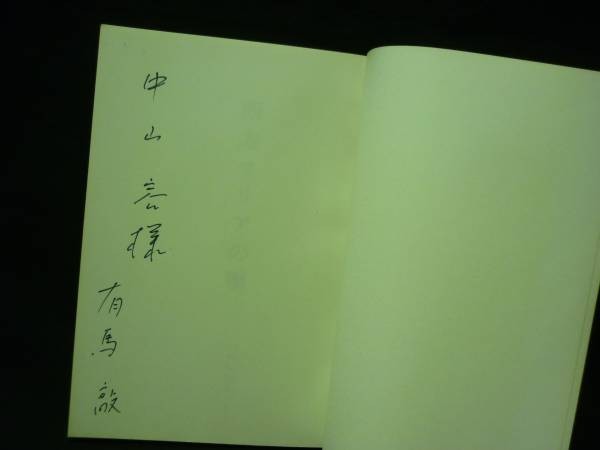 中山 容様
有馬 敲